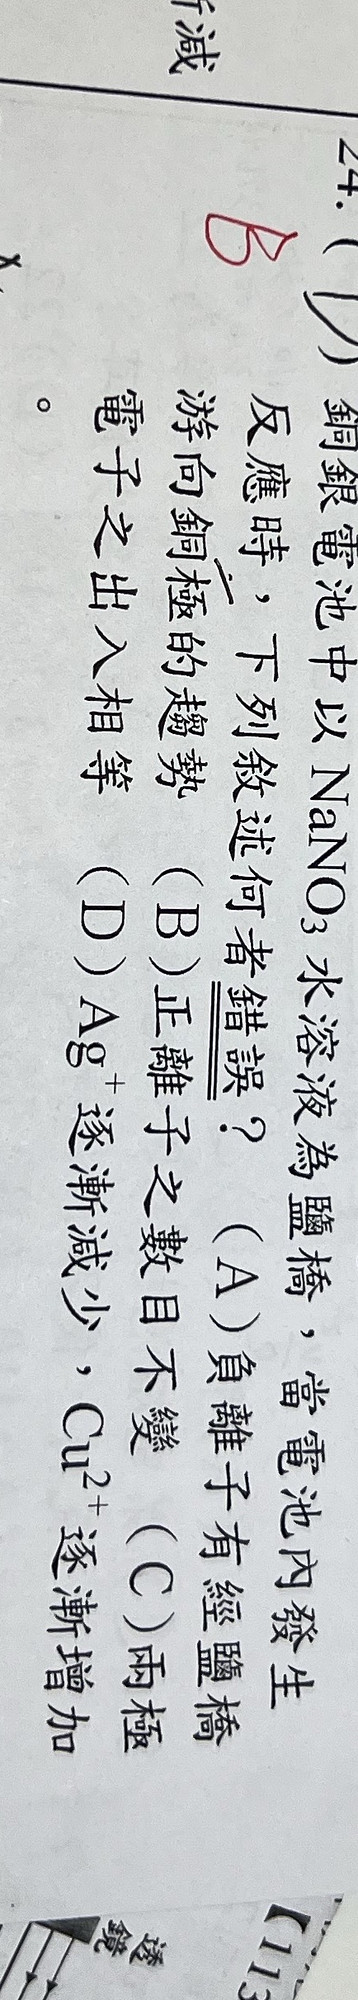 漸減
24. (D) 銅銀電池中以 NaNO₃ 水溶液為鹽橋，當電池內發生
B
反應時，下列敘述何者錯誤？ (A)負離子有經鹽橋
游向銅極的趨勢 (B)正離子之數目不變 (C)兩極
電子之出入相等 (D)Ag⁺逐漸減少，Cu²⁺逐漸增加
。
【113
透鏡